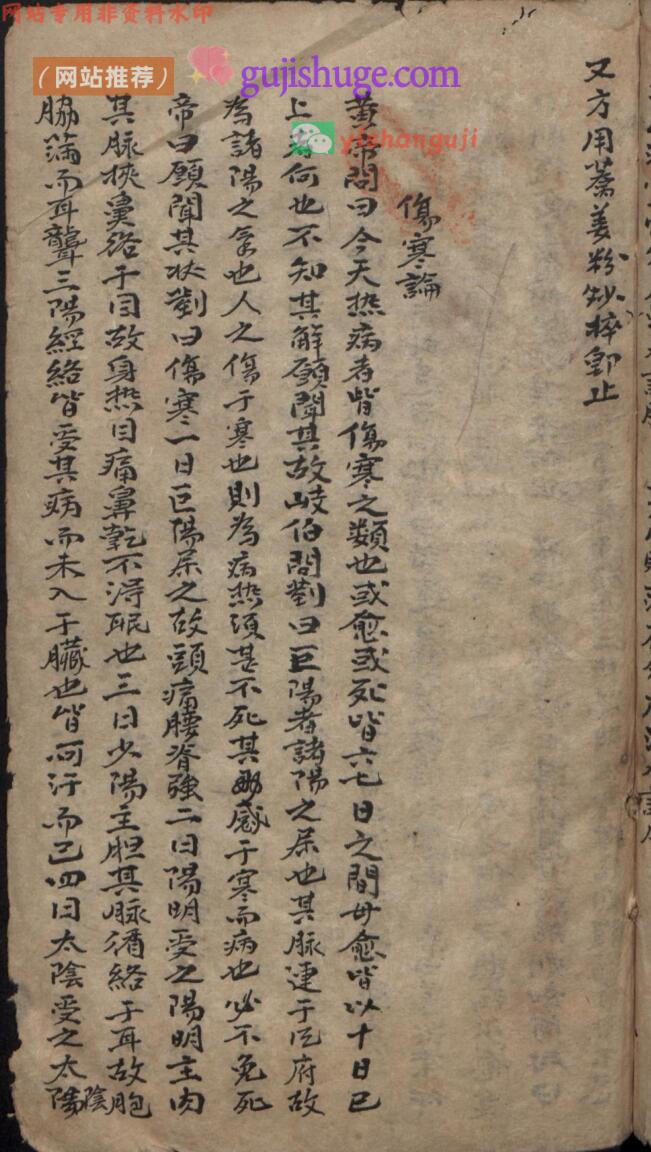 网站专用非资料水印
(网站推荐)
gujishuge.com
yishanguji
又方用蕎姜粉炒搾鄞止
傷寒論
黄帝問曰今天热病者皆傷寒之類也或愈或死皆六七日之間毋愈皆以十日已
上者何也不知其解願聞其故岐伯問對曰巨陽者諸陽之屬也其脉連于風府故
為諸陽之氣也人之傷于寒也則為病热須甚不死其两感于寒而病也必不免死
帝曰願聞其状對曰傷寒一日巨陽屬之故頭痛腰脊強二日陽明受之陽明主肉
其脉挾鼻絡于目故身热目痛鼻乾不得眠也三日少陽主胆其脉循絡于耳故胞
脇滿而耳聾三陽經絡皆受其病而未入于臟也皆可汗而已四日太陰受之太陽陰